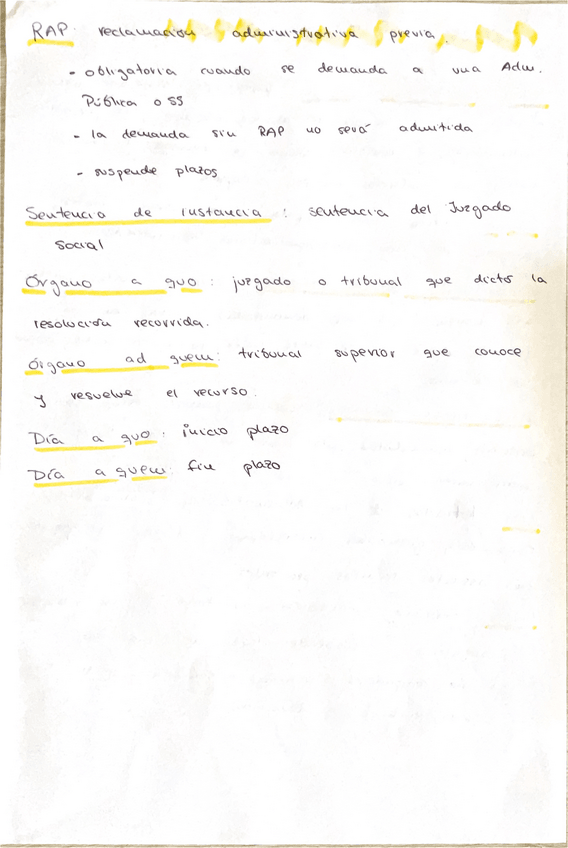 RAP: reclamación administrativa previa.
- obligatoria cuando se demanda a una Adm.
Pública o SS
- la demanda sin RAP no será admitida
- suspende plazos
Sentencia de instancia: sentencia del Juzgado
Social
Órgano a quo: juzgado o tribunal que dictó la
resolución recurrida.
Órgano ad quem: tribunal superior que conoce
y resuelve el recurso.
Día a quo: inicio plazo
Día a quem: fin plazo